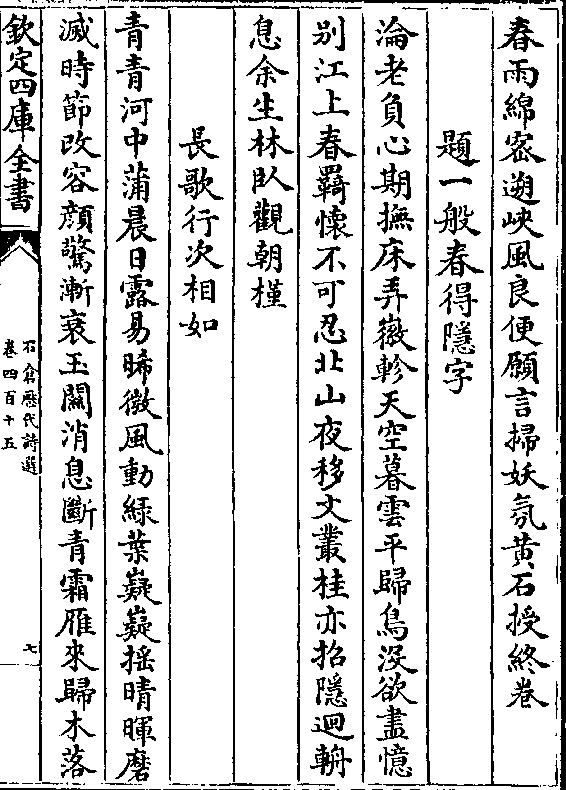 春雨綿宻遡峽風良便願言掃妖氛黄石授終卷
題一般春得隱字
淪老負心期撫床弄徽軫天空暮雲平歸鳥没欲盡憶
别江上春羇懷不可忍北山夜移文叢桂亦招隱迴輈
息余生林卧觀朝槿
長歌行次相如
青青河中蒲晨日露易晞微風動緑葉嶷嶷揺晴暉磨
滅時節改容顔驚漸衰玉關消息斷青霜雁來歸木落
欽定四庫全書
石倉歴代詩選
卷四百十五
七